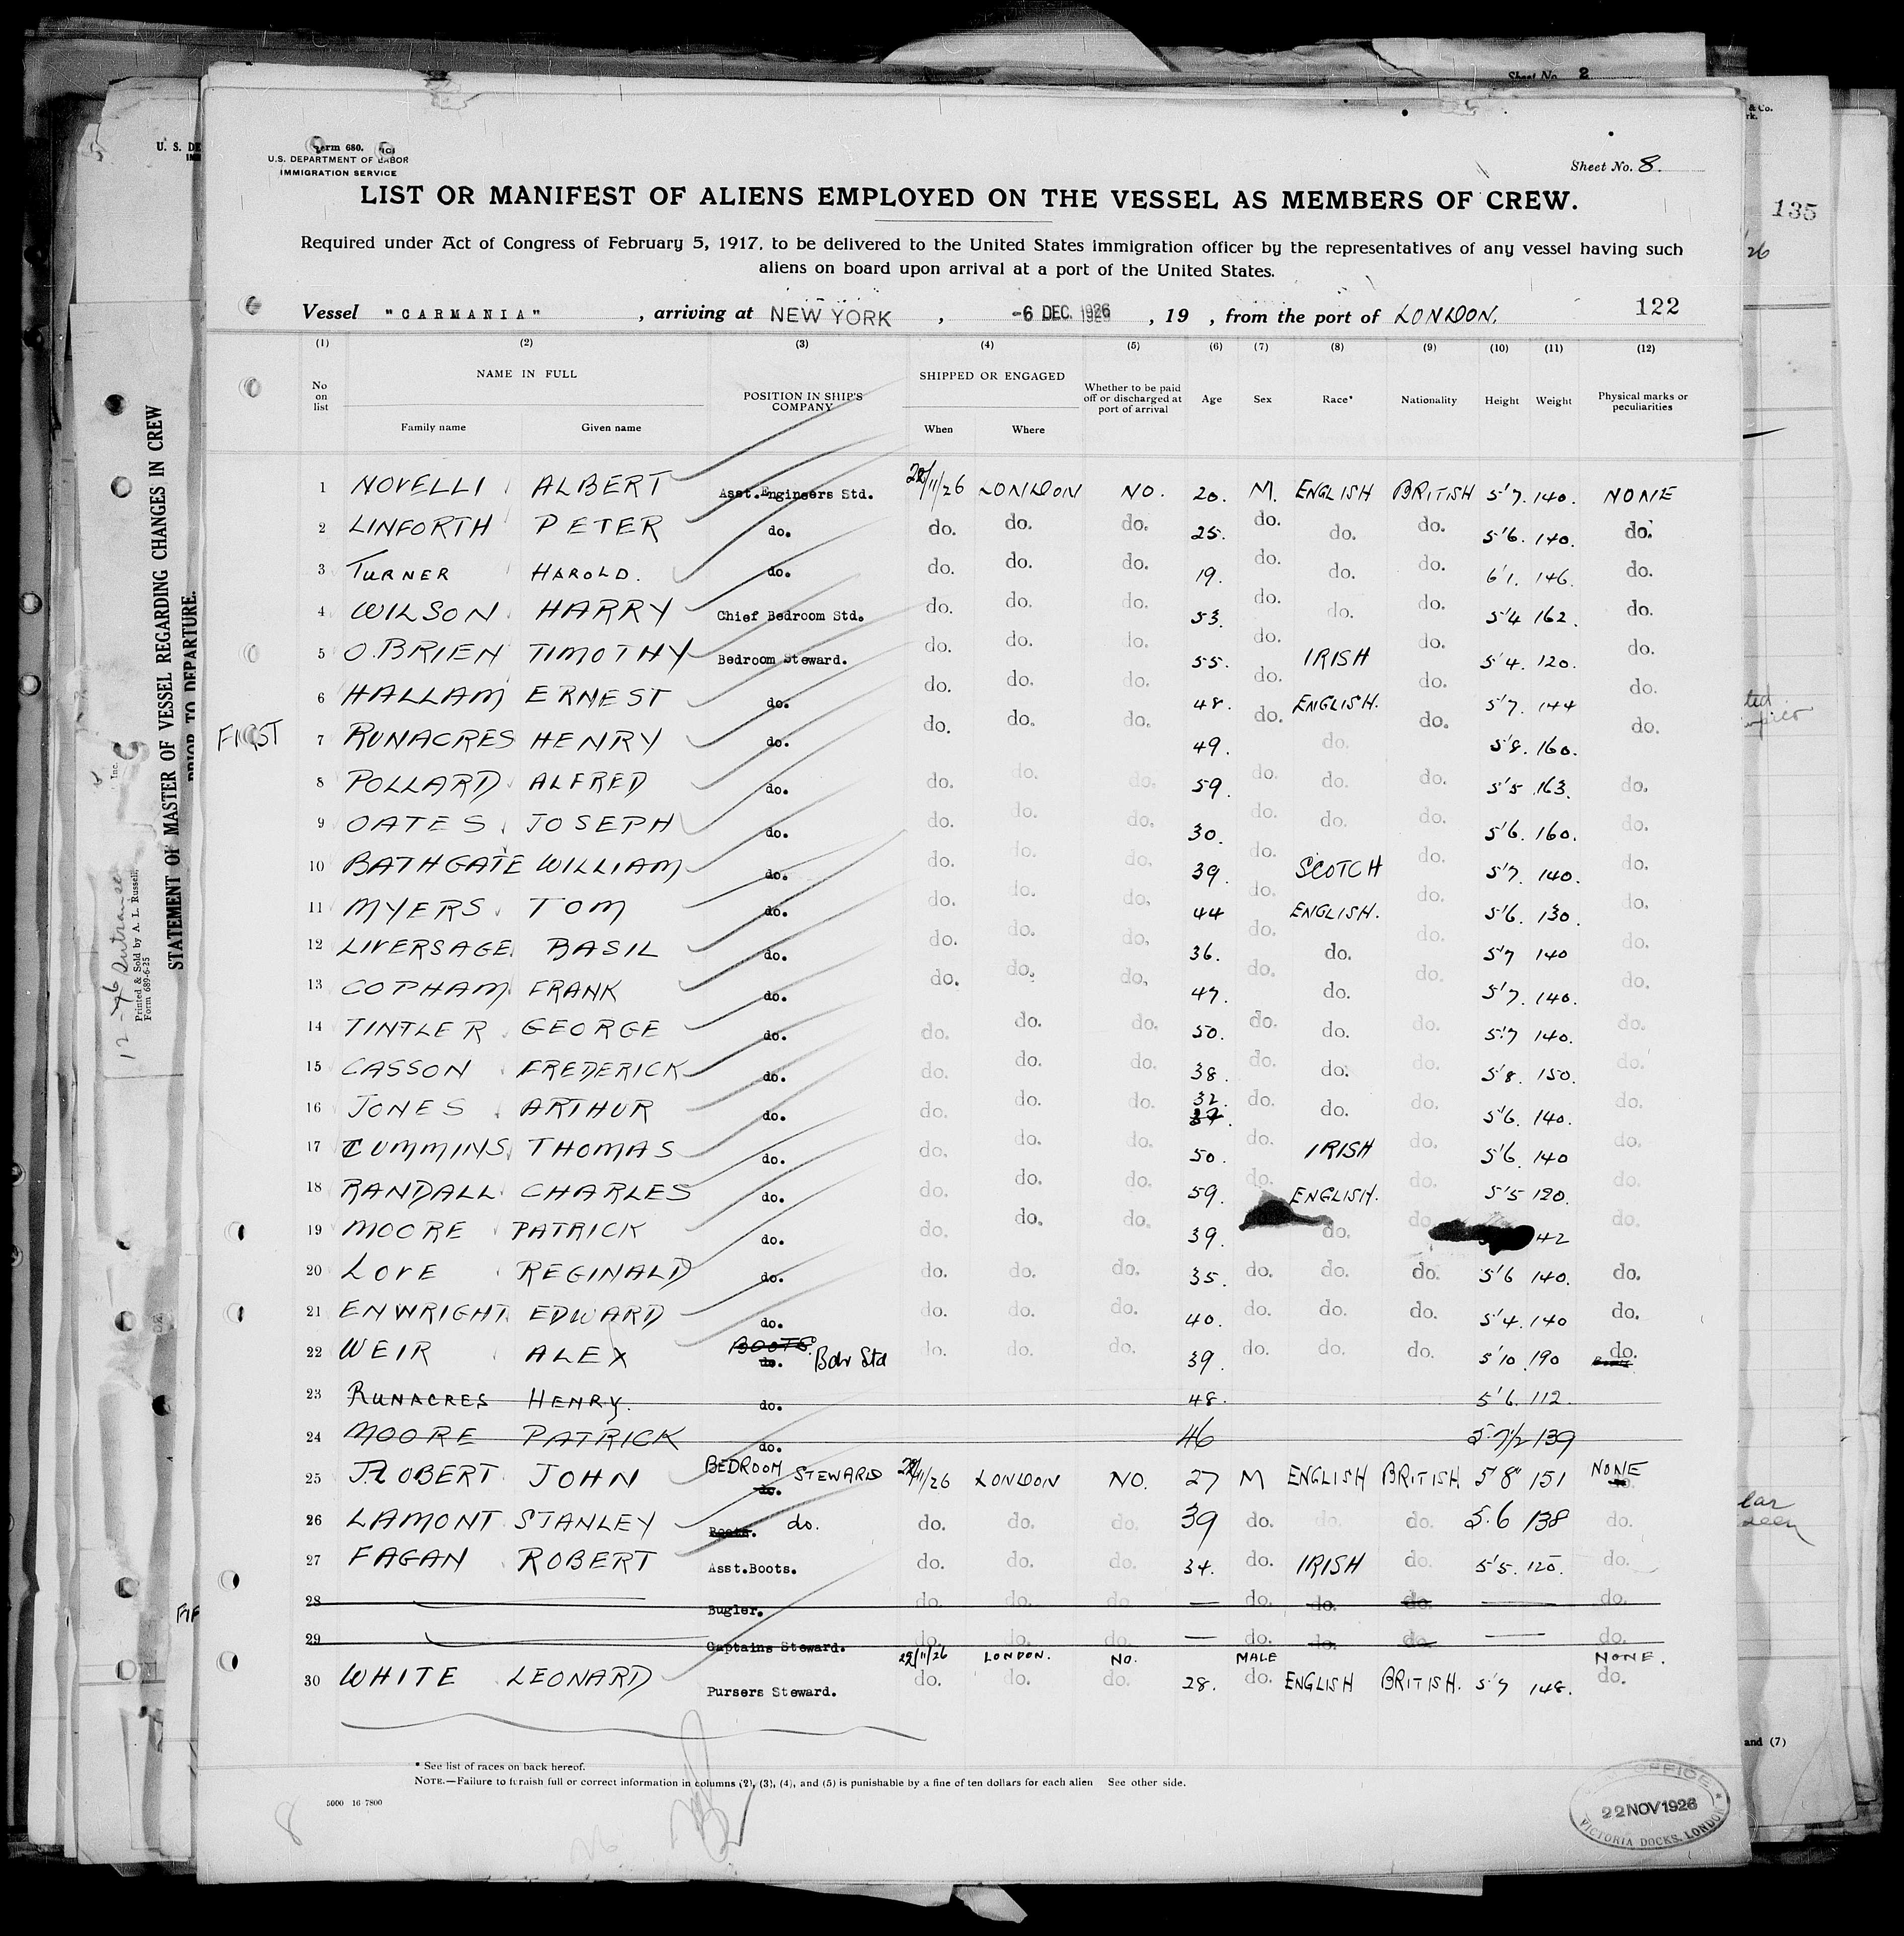 Sheet No. 2
Form 680.
U.S. DEPARTMENT OF LABOR
IMMIGRATION SERVICE
Sheet No. 8.
LIST OR MANIFEST OF ALIENS EMPLOYED ON THE VESSEL AS MEMBERS OF CREW.
Required under Act of Congress of February 5, 1917, to be delivered to the United States immigration officer by the representatives of any vessel having such
aliens on board upon arrival at a port of the United States.
Vessel "CARMANIA" , arriving at NEW YORK , -6 DEC. 1926 , 19 , from the port of LONDON. 122
(1) (2) (3) (4) (5) (6) (7) (8) (9) (10) (11) (12)
No on list NAME IN FULL Family name Given name POSITION IN SHIP'S COMPANY SHIPPED OR ENGAGED When Where Whether to be paid off or discharged at port of arrival Age Sex Race* Nationality Height Weight Physical marks or peculiarities
1 NOVELLI ALBERT Asst.Engineers Std. 22/11/26 LONDON NO. 20. M. ENGLISH BRITISH 5'7. 140. NONE
2 LINFORTH PETER do. do. do. do. 25. do. do. do. 5'6. 140. do.
3 TURNER HAROLD. do. do. do. do. 19. do. do. do. 6'1. 146. do.
4 WILSON HARRY Chief Bedroom Std. do. do. do. 53. do. do. do. 5'4 162. do.
5 O.BRIEN TIMOTHY Bedroom Steward. do. do. do. 55. do. IRISH do. 5'4. 120. do.
6 HALLAM ERNEST do. do. do. do. 48. do. ENGLISH. do. 5'7. 144 do.
FIRST
7 RUNACRES HENRY do. do. do. do. 49. do. do. do. 5'8. 160. do.
8 POLLARD ALFRED do. do. do. do. 59. do. do. do. 5'5 163. do.
9 OATES JOSEPH do. do. do. do. 30. do. do. do. 5'6. 160. do.
10 BATHGATE WILLIAM do. do. do. do. 39. do. SCOTCH do. 5'7. 140. do.
11 MYERS TOM do. do. do. do. 44 do. ENGLISH. do. 5'6. 130. do.
12 LIVERSAGE BASIL do. do. do. do. 36. do. do. do. 5'7 140 do.
13 COPHAM FRANK do. do. do. do. 47. do. do. do. 5'7. 140. do.
14 TINTLER GEORGE do. do. do. do. 50. do. do. do. 5'7 140. do.
15 CASSON FREDERICK do. do. do. do. 38. do. do. do. 5'8. 150. do.
16 JONES ARTHUR do. do. do. do. 32. 37. do. do. do. 5'6. 140. do.
17 CUMMINS THOMAS do. do. do. do. 50. do. IRISH do. 5'6. 140 do.
18 RANDALL CHARLES do. do. do. do. 59. do. ENGLISH. do. 5'5 120. do.
19 MOORE PATRICK do. do. do. do. 39. do. do. 42 do.
20 LOVE REGINALD do. do. do. do. 35. do. do. do. 5'6 140. do.
21 ENWRIGHT EDWARD do. do. do. do. 40. do. do. do. 5'4. 140 do.
22 WEIR ALEX BOOTS. do. Bdr Std do. do. do. 39. do. do. do. 5'10. 190 do.
23 RUNACRES HENRY. do. 48. 5'6. 112.
24 MOORE PATRICK do. 46 5.7½ 139
25 ROBERT JOHN BEDROOM STEWARD do. 22/11/26 LONDON NO. 27 M ENGLISH BRITISH. 5'8" 151 NONE
26 LAMONT STANLEY Boots. do. do. do. do. 39 do. do. do. 5.6 138 do.
27 FAGAN ROBERT Asst.Boots. do. do. do. 34. do. IRISH do. 5'5. 120. do.
28 Bugler. do. do. do. — do. do. do. — do.
29 Captains Steward. do. do. do. — do. do. do. — do.
22/11/26 LONDON. NO. MALE NONE.
30 WHITE LEONARD Pursers Steward. do. do. do. 28. do. ENGLISH BRITISH. 5'7 148. do.
* See list of races on back hereof.
NOTE.—Failure to furnish full or correct information in columns (2), (3), (4), and (5) is punishable by a fine of ten dollars for each alien See other side.
5000 16 7800
8
OFFICE
22 NOV 1926
VICTORIA DOCKS, LONDON
STATEMENT OF MASTER OF VESSEL REGARDING CHANGES IN CREW
PRIOR TO DEPARTURE.
Printed & Sold by A. L. Russell, Inc.
Form 689-6-25
U. S. DE
135
and (7)